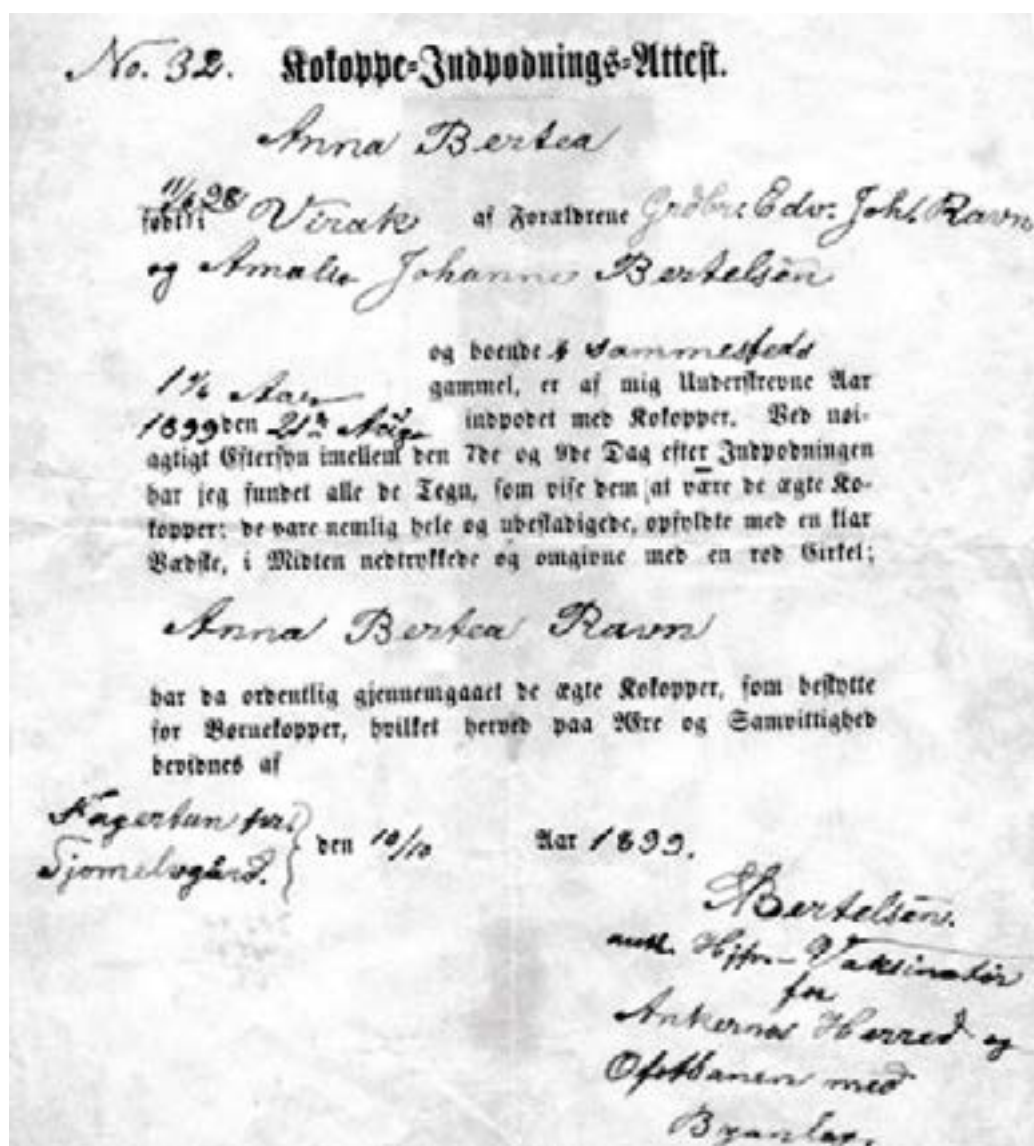 No. 32. Kokoppe-Indpodnings-Attest.
Anna Bertea
11/6 98
født i Virak af Forældrene Edv. Joh. Ravn
og Johanne Bertelsen
og boende sammesteds
Aar gammel, er af mig Underskrevne Aar
1899 den 21de Aug. indpodet med Kokopper. Ved nøi-
agtigt Eftersyn imellem den 7de og 9de Dag efter Indpodningen
har jeg fundet alle de Tegn, som vise dem at være de ægte Ko-
kopper; de vare nemlig hele og ubeskadigede, opfyldte med en klar
Vædske, i Midten nedtrykkede og omgivne med en rød Cirkel;
Anna Bertea Ravn
har da ordentlig gjennemgaaet de ægte Kokopper, som beskytte
for Børnekopper, hvilket herved paa Ære og Samvittighed
bevidnes af
Fagertun
den 10/10 Aar 1899.
Bertelsen.
Vaksinatør
for
Ankenes Herred og
Ofotbanen med